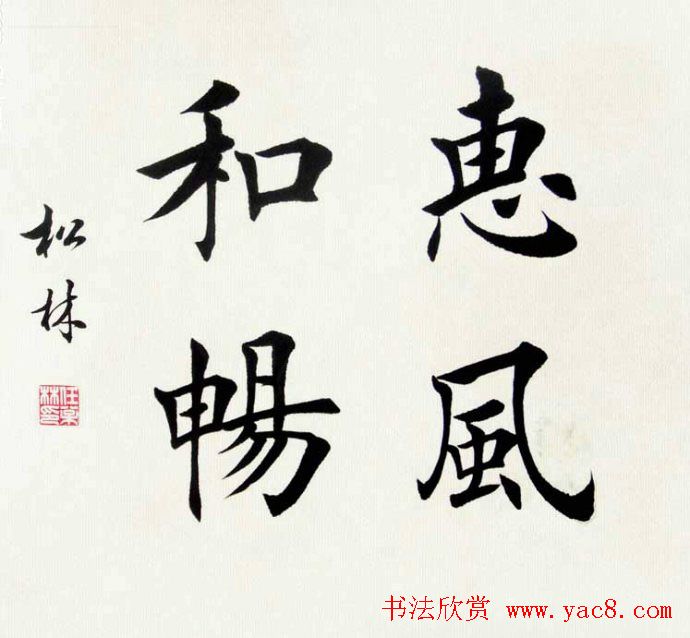 惠風
和暢
松林
书法欣赏 www.yac8.com